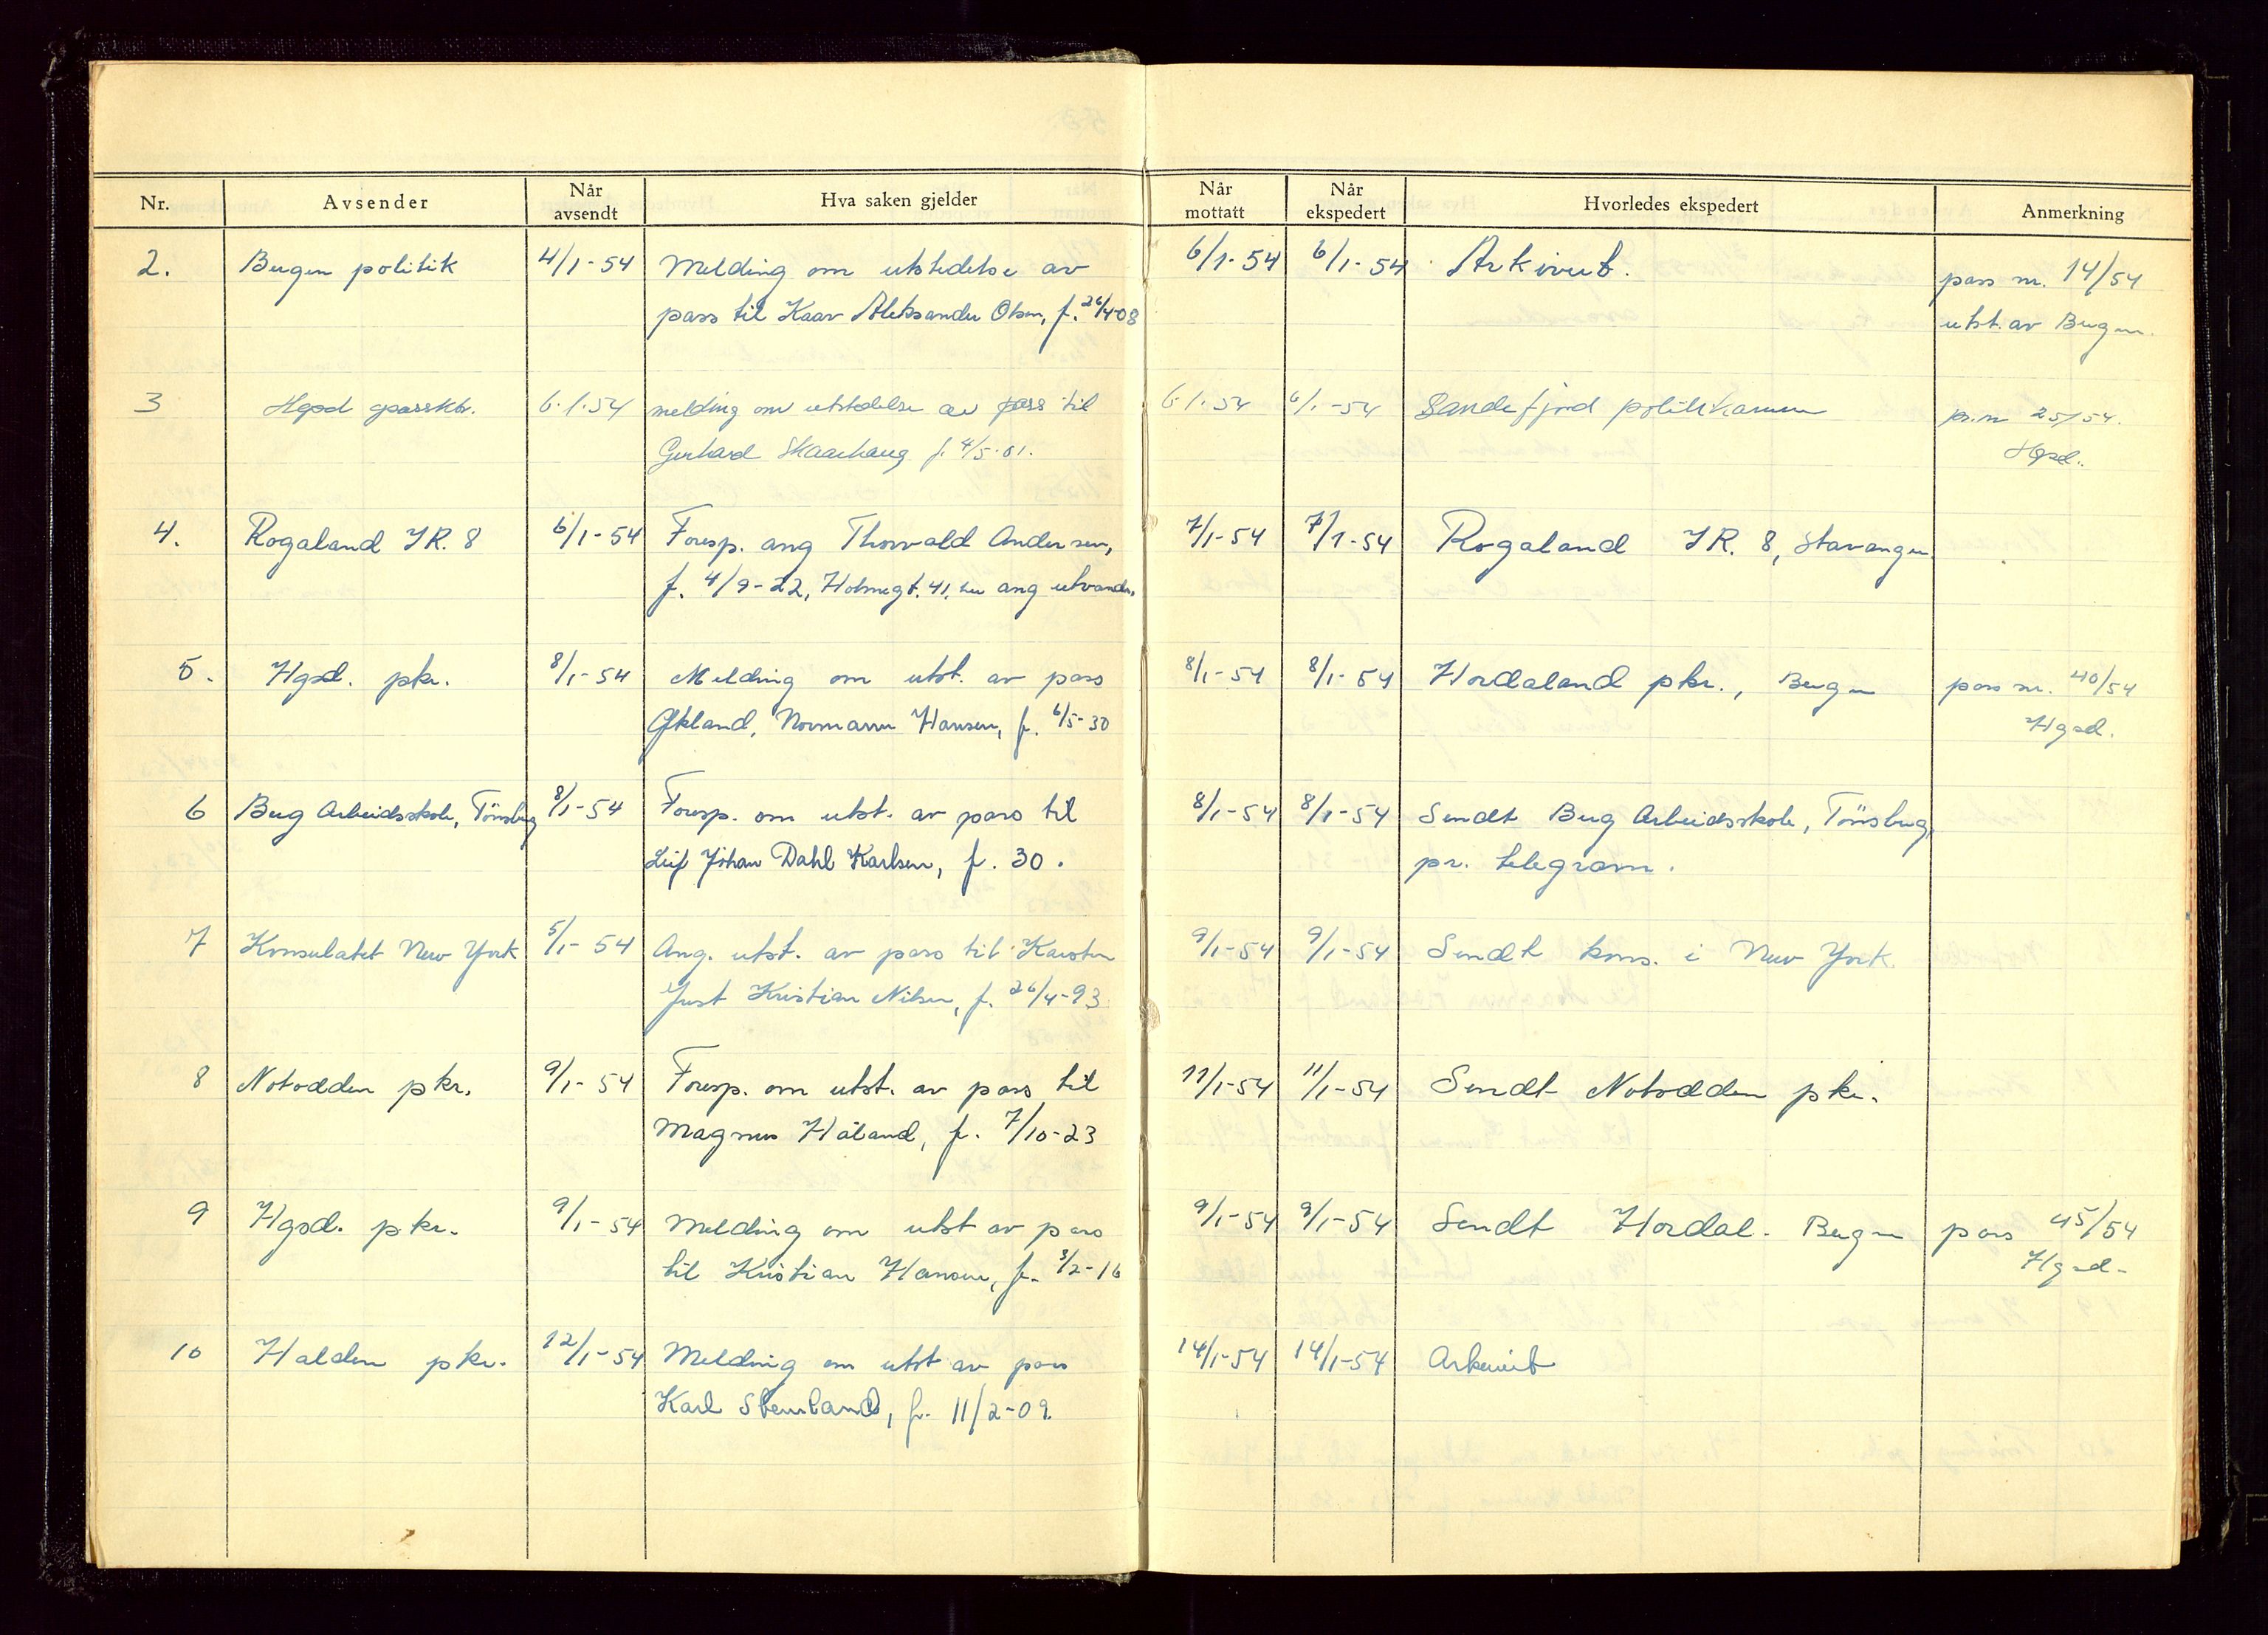 Nr. Avsender Når avsendt Hva saken gjelder Når mottatt Når ekspedert Hvorledes ekspedert Anmerkning
2. Bergen politik 4/1-54 Melding om utstedelse av 6/1-54 6/1-54 Arkivert. pass nr. 14/54
pass til Kaar Aleksander Olsen, f. 26/4-08 utst. av Bergen.
3 Hgsd passktr. 6.1.54 melding om utstedelse av pass til 6.1.54 6/1-54 Sandefjord politikammer p.nr 25/54.
Gerhard Skaarhaug f. 4/5-01. Hgsd.
4. Rogaland IR. 8 6/1-54 Foresp. ang Thorvald Andersen, 7/1-54 7/1-54 Rogaland IR. 8, Stavanger
f. 4/9-22, Holmegt. 41, her ang utvandr.
5. Hgsd. pkr. 8/1-54 Melding om utst. av pass 8/1-54 8/1-54 Hordaland pkr., Bergen pass nr. 40/54
Økland, Normann Hansen, f. 6/5-30 Hgsd.
6 Berg Arbeidsskole, Tönsberg 8/1-54 Foresp. om utst. av pass til 8/1-54 8/1-54 Sendt Berg Arbeidsskole, Tönsberg,
Leif Johan Dahl Karlsen, f. 30. pr. telegram.
7 Konsulatet New York 5/1-54 Ang. utst. av pass til Karsten 9/1-54 9/1-54 Sendt kons. i New York.
Just Kristian Nilsen, f. 26/4-93
8 Notodden pkr. 9/1-54 Foresp. om utst. av pass til 11/1-54 11/1-54 Sendt Notodden pkr.
Magnus Håland, f. 7/10-23
9 Hgsd. pkr. 9/1-54 Melding om utst av pass 9/1-54 9/1-54 Sendt Hordal. Bergen pass 45/54
til Kristian Hansen, f. 3/2-16 Hgsd-
10 Halden pkr. 12/1-54 Melding om utst av pass 14/1-54 14/1-54 Arkivert
Karl Stenland, f. 11/2-09.